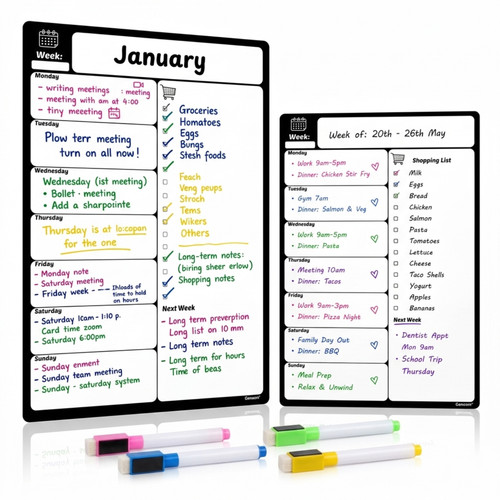 Week:
January
Monday
- writing meetings : meeting
- meeting with am at 4:00
- tiny meeting
Tuesday
Plow terr meeting
turn on all now!
Wednesday
Wednesday (ist meeting)
• Bollet · meeting
• Add a sharpointe
Thursday
Thursday is at
for the one
Friday
- Monday note
- Saturday meeting
- Friday week - Inloads of
time to hold
on hours
Saturday
- Saturday 10am - 1:10 p.
Card time zoom
- Saturday 6:00pm
Sunday
- Sunday enment
- Sunday team meeting
- Sunday - saturday system
Groceries
Homatoes
Eggs
Bungs
Stesh foods
Feach
Veng peups
Stroch
Tems
Wikers
Others
Long-term notes:
(biring sheer erlow)
Shopping notes
Next Week
- Long term preverption
Long list on 10 mm
- Long term notes
- Long term for hours
Time of beas
Week:
Week of: 20th - 26th May
Monday
• Work 9am-5pm
• Dinner: Chicken Stir Fry
Tuesday
• Gym 7am
• Dinner: Salmon & Veg
Wednesday
• Work 9am-5pm
• Dinner: Pasta
Thursday
• Meeting 10am
• Dinner: Tacos
Friday
• Work 9am-3pm
• Dinner: Pizza Night
Saturday
• Family Day Out
• Dinner: BBQ
Sunday
• Meal Prep
• Relax & Unwind
Shopping List
Milk
Eggs
Bread
Chicken
Salmon
Pasta
Tomatoes
Lettuce
Cheese
Taco Shells
Yogurt
Apples
Bananas
Next Week
• Dentist Appt
Mon 9am
• School Trip
Thursday